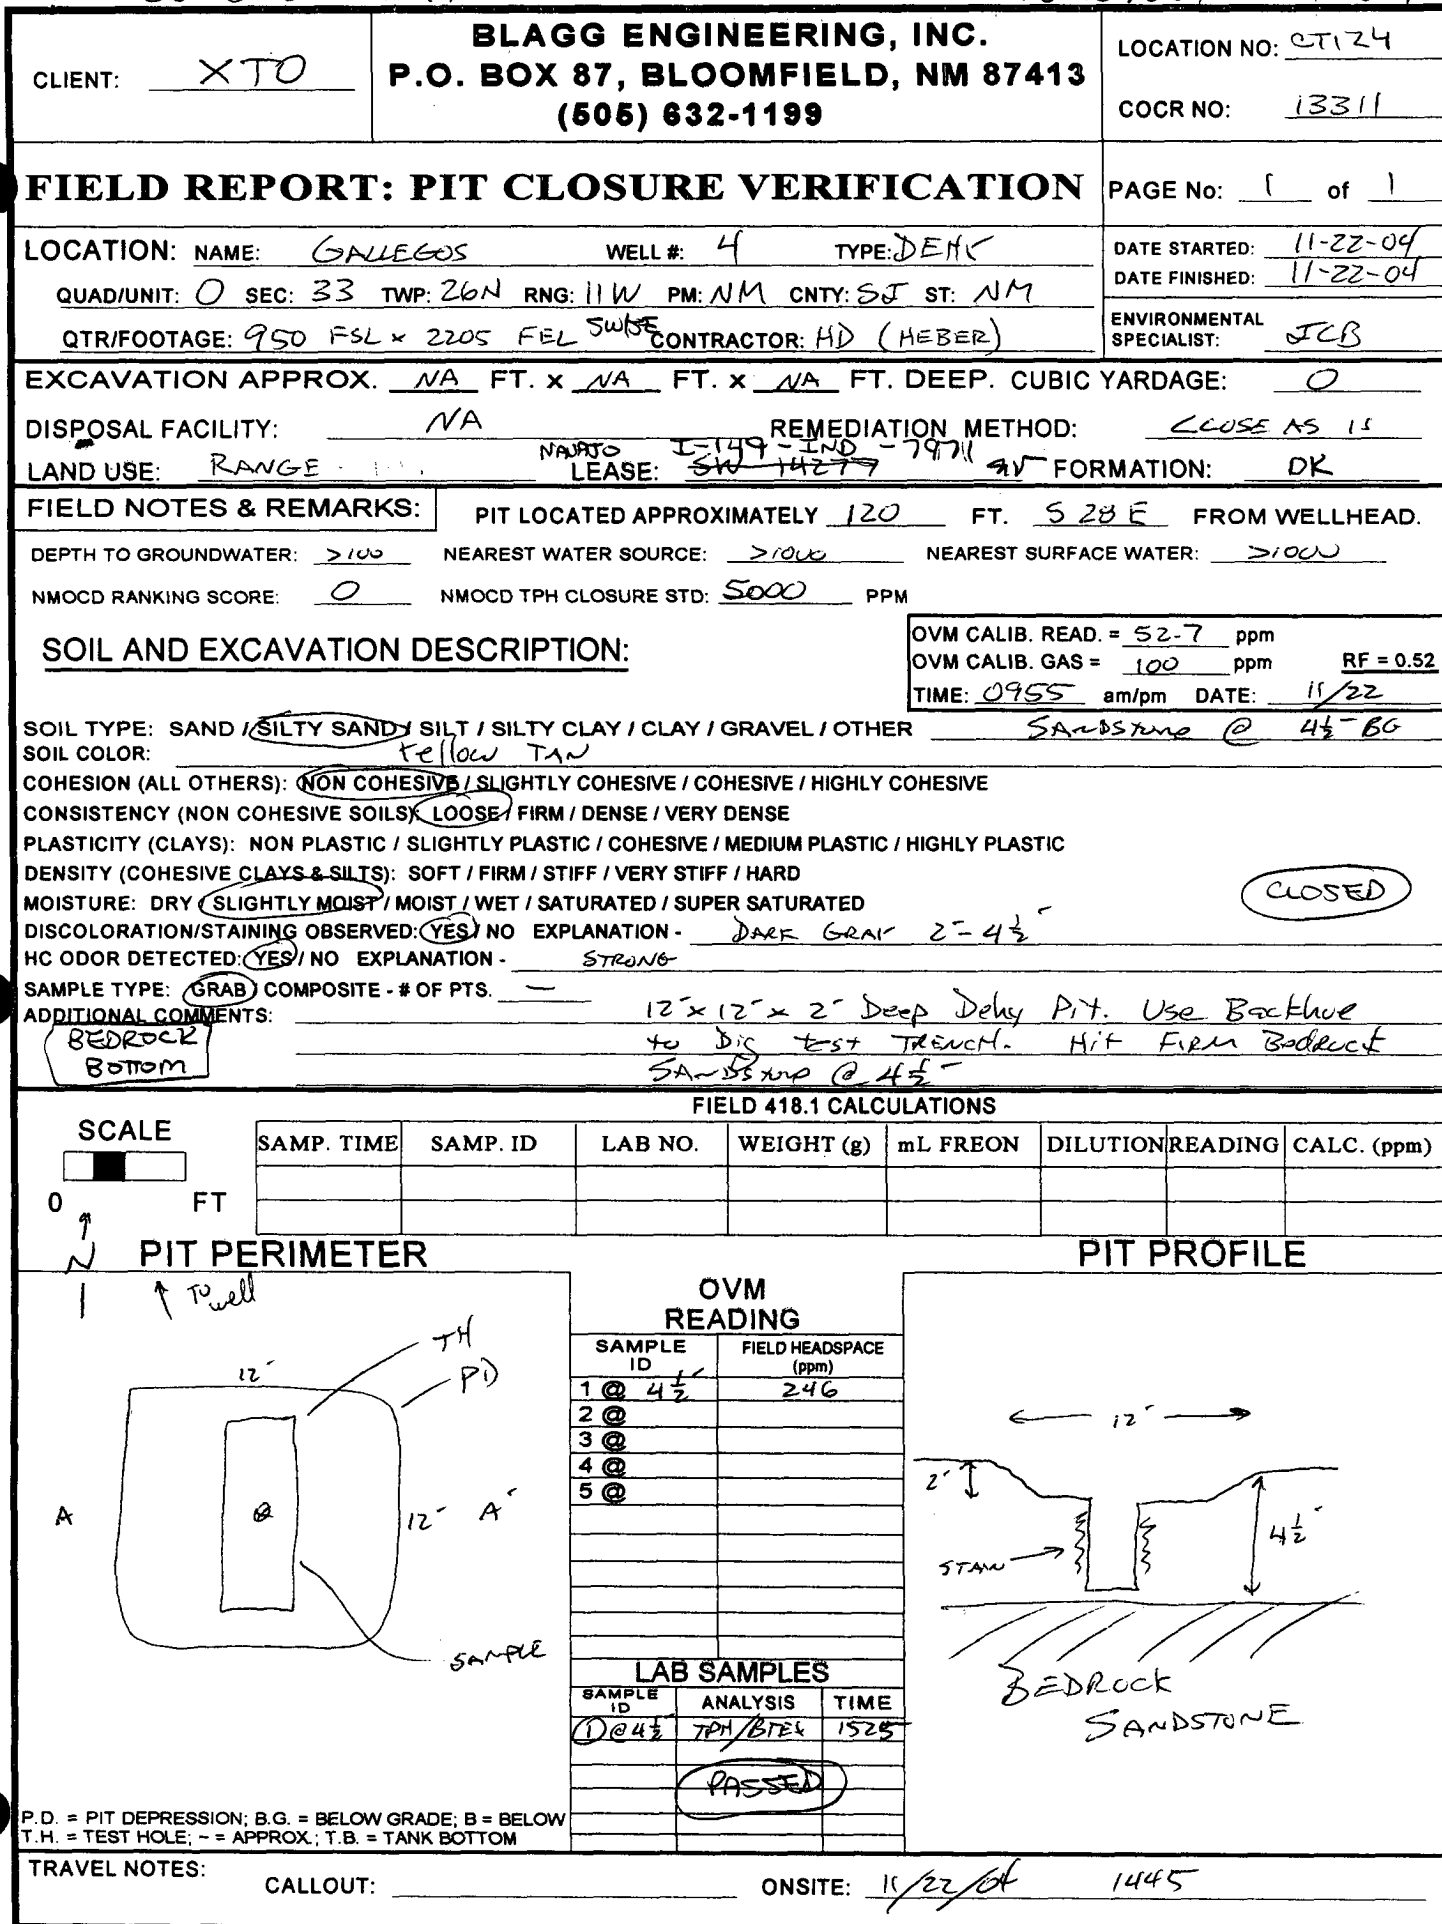 BLAGG ENGINEERING, INC.
P.O. BOX 87, BLOOMFIELD, NM 87413
(505) 632-1199
CLIENT: XTO
LOCATION NO: CT124
COCR NO: 13311
FIELD REPORT: PIT CLOSURE VERIFICATION
PAGE No: 1 of 1
LOCATION: NAME: GALLEGOS WELL #: 4 TYPE: DEHY
QUAD/UNIT: O SEC: 33 TWP: 26N RNG: 11W PM: NM CNTY: SJ ST: NM
QTR/FOOTAGE: 950 FSL x 2205 FEL SW/SE CONTRACTOR: HD (HEBER)
DATE STARTED: 11-22-04
DATE FINISHED: 11-22-04
ENVIRONMENTAL
SPECIALIST: JCB
EXCAVATION APPROX. NA FT. x NA FT. x NA FT. DEEP. CUBIC YARDAGE: 0
DISPOSAL FACILITY: NA REMEDIATION METHOD: CLOSE AS IS
NAVAJO I-149-IND-7971
LAND USE: RANGE LEASE: SW 14279 FORMATION: DK
FIELD NOTES & REMARKS: PIT LOCATED APPROXIMATELY 120 FT. S 28 E FROM WELLHEAD.
DEPTH TO GROUNDWATER: >100 NEAREST WATER SOURCE: >1000 NEAREST SURFACE WATER: >1000
NMOCD RANKING SCORE: 0 NMOCD TPH CLOSURE STD: 5000 PPM
SOIL AND EXCAVATION DESCRIPTION:
OVM CALIB. READ. = 52.7 ppm
OVM CALIB. GAS = 100 ppm RF = 0.52
TIME: 0955 am/pm DATE: 11/22
SOIL TYPE: SAND / SILTY SAND / SILT / SILTY CLAY / CLAY / GRAVEL / OTHER SANDSTONE @ 4½' BG
SOIL COLOR: Yellow TAN
COHESION (ALL OTHERS): NON COHESIVE / SLIGHTLY COHESIVE / COHESIVE / HIGHLY COHESIVE
CONSISTENCY (NON COHESIVE SOILS): LOOSE / FIRM / DENSE / VERY DENSE
PLASTICITY (CLAYS): NON PLASTIC / SLIGHTLY PLASTIC / COHESIVE / MEDIUM PLASTIC / HIGHLY PLASTIC
DENSITY (COHESIVE CLAYS & SILTS): SOFT / FIRM / STIFF / VERY STIFF / HARD
MOISTURE: DRY / SLIGHTLY MOIST / MOIST / WET / SATURATED / SUPER SATURATED
CLOSED
DISCOLORATION/STAINING OBSERVED: YES / NO EXPLANATION - DARK GRAY 2'-4½'
HC ODOR DETECTED: YES / NO EXPLANATION - STRONG
SAMPLE TYPE: GRAB / COMPOSITE - # OF PTS. —
ADDITIONAL COMMENTS: 12' x 12' x 2' Deep Dehy Pit. Use Backhoe
to Dig test TRENCH. Hit FIRM Bedrock
SANDSTONE @ 4½'
BEDROCK
BOTTOM
FIELD 418.1 CALCULATIONS
SCALE
0 FT
SAMP. TIME SAMP. ID LAB NO. WEIGHT (g) mL FREON DILUTION READING CALC. (ppm)
N
PIT PERIMETER
To well
TH
PD
12'
12'
A A'
SAMPLE
OVM
READING
SAMPLE
ID
FIELD HEADSPACE
(ppm)
1 @ 4½' 246
2 @
3 @
4 @
5 @
LAB SAMPLES
SAMPLE
ID
ANALYSIS TIME
① @ 4½' TPH/BTEX 1525
PASSED
PIT PROFILE
12'
2'
4½'
STAIN
BEDROCK
SANDSTONE
P.D. = PIT DEPRESSION; B.G. = BELOW GRADE; B = BELOW
T.H. = TEST HOLE; ~ = APPROX.; T.B. = TANK BOTTOM
TRAVEL NOTES:
CALLOUT: ONSITE: 11/22/04 1445